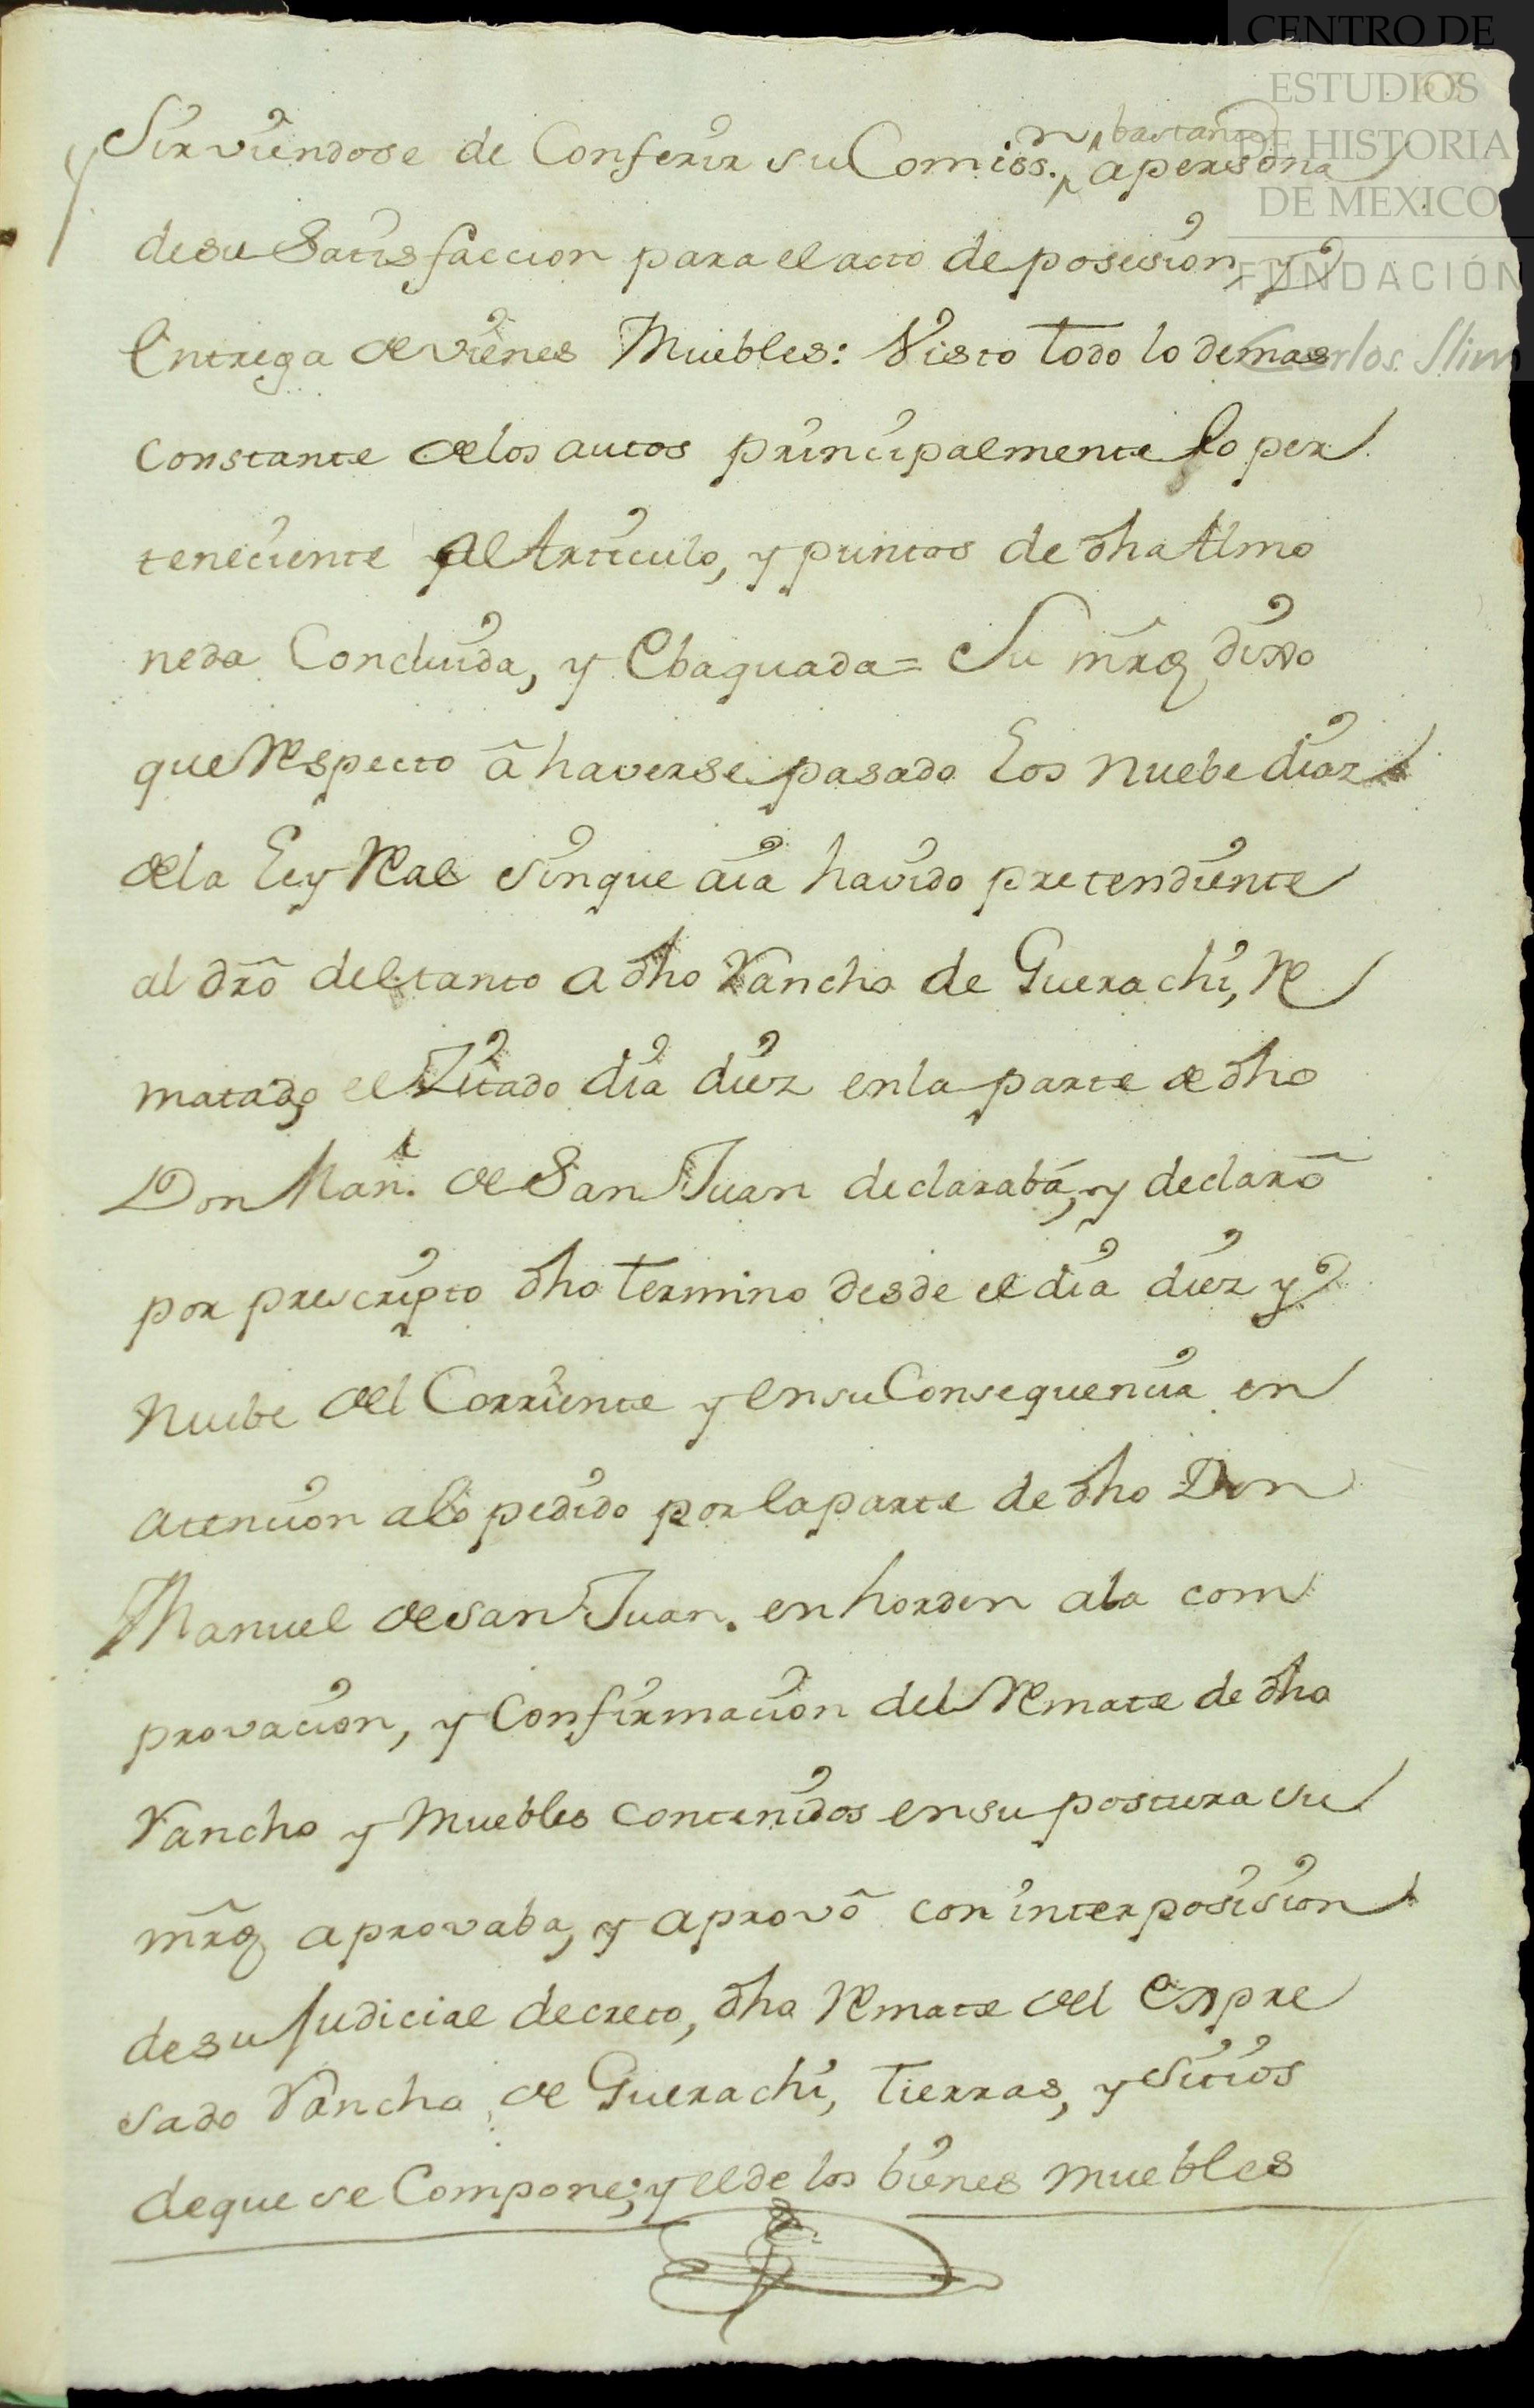 CENTRO DE
ESTUDIOS
DE HISTORIA
DE MEXICO
FUNDACIÓN
Carlos Slim
y Sirviendose de Conferir su Comiss.n bastante a persona
desu Satisfaccion para el acto de posesion, y
Entrega de vienes Muebles: Visto todo lo demas
constante delos autos principalmente lo per
teneciente al Articulo, y puntos de dha Almo
neda Concluida, y Ebaquada = Su mrd dixo
que Respecto â haverse pasado Los nuebe diaz
dela Ley Real sinque aia havido pretendiente
al dro̅ del tanto a dho Rancho de Guerachi, Re
matado el Zitado dia diez enla parte de dho
Don Man.l de San Juan declaraba, y declarô
por prescripto dho termino desde el dia diez y
nuebe del Corriente y ensu Consequencia en
atencion alo pedido por la parte de dho Don
Manuel de san Juan. en horden ala com
provacion, y Confirmacion del Remate de dho
Rancho y Muebles contenidos ensu postura su
mrd aprovaba, y aprovô con interposision
desu Judicial decreto, dho Remate del Expre
sado Rancho de Guerachi, tierras, y Sitios
deque se Compone; y el de los bienes muebles